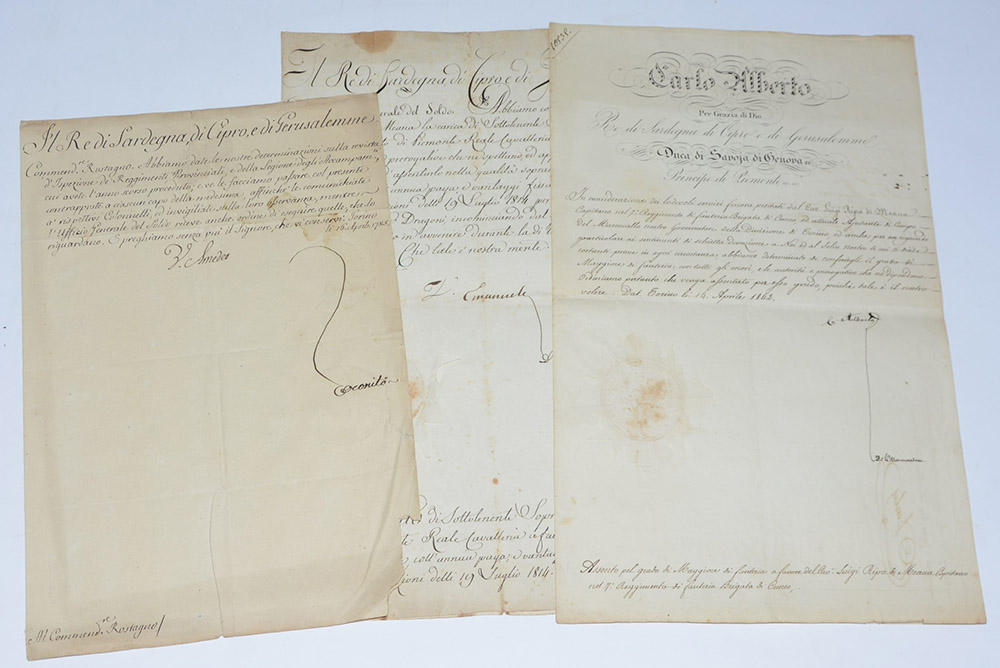 Il Re di Sardegna, di Cipro, e di Gerusalemme
Commend.re Rostagno. Abbiamo date le nostre determinazioni sulla rivista
d'Ispezione de' Reggimenti Provinciali, e della Legione degli Accampam.ti
cui avete l'anno scorso proceduto, e ve le facciamo passare col presente
contrapposte a ciascun capo della medesima, affinchè le comunichiate
a' rispettivi Colonnelli, ed invigiliate sulla loro osservanza, mentre
l'Uffizio Generale del Soldo riceve anche ordine di eseguire quelle, che lo
riguardano. E preghiamo senza più il Signore, che vi conservi. Torino
li 16 Aprile
V. Amedeo
Al Commend.re Rostagno
Il Re di Sardegna, di Cipro, e di
rale del Soldo. Abbiamo co
Meana la carica di Sottotenente
di Piemonte Reale Cavalleria
prerogative che vi spettano, ed app
d'assentarlo nella qualità sopra
annua paga, e vantaggi fiss
ioni delli 19 Luglio 1814 per
Dragoni, incominciando dal
in avvenire durante la di
Che tale è nostra mente
V. Emanuele
di Sottotenente Sopr
te Reale Cavalleria a fa
coll'annua paga, e vanta
zione delli 19 Luglio 1814.
Carlo Alberto
Per Grazia di Dio
Re di Sardegna di Cipro e di Gerusalemme
Duca di Savoja di Genova
Principe di Piemonte
In considerazione dei lodevoli servizi finora prestati dal Cav. Luigi Ripa di Meana
Capitano nel 7.º Reggimento di fanteria Brigata di Cuneo ed attuale Ajutante di Campo
del Maresciallo nostro Governatore della Divisione di Torino ed anche per un riguardo
particolare ai sentimenti di
costanti prove in ogni circostanza, abbiamo determinato di conferirgli il grado di
Maggiore di fanteria, con tutti gli onori, e le autorità e prerogative che ne dipendono.
Ordiniamo pertanto che venga assentato per esso grado, poichè tale è il nostro
volere. Dat. Torino li 14 Aprile
C. Alberto
Assento pel grado di Maggiore di fanteria a favore del Cav. Luigi Ripa di Meana Capitano
nel 7.º Reggimento di fanteria Brigata di Cuneo.